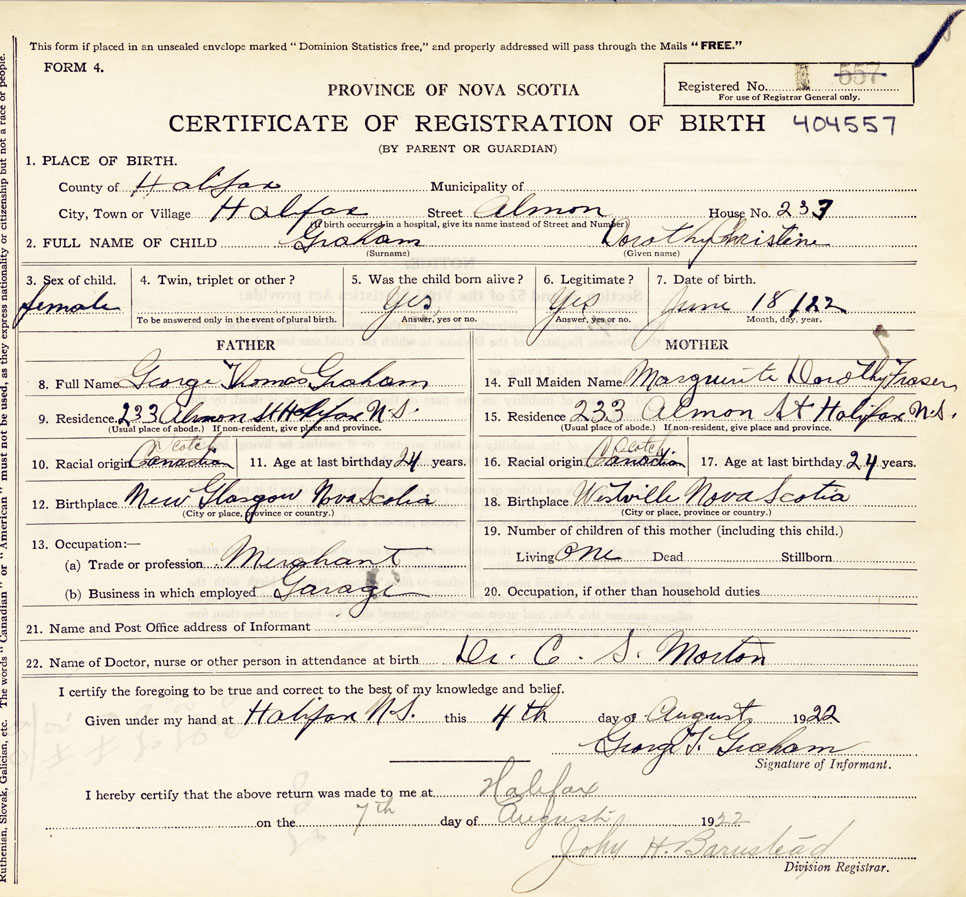 This form if placed in an unsealed envelope marked "Dominion Statistics free," and properly addressed will pass through the Mails "FREE."
FORM 4.
Registered No. 557
For use of Registrar General only.
PROVINCE OF NOVA SCOTIA
CERTIFICATE OF REGISTRATION OF BIRTH 404557
(BY PARENT OR GUARDIAN)
1. PLACE OF BIRTH.
County of Halifax Municipality of
City, Town or Village Halifax Street Almon House No. 233
(If birth occurred in a hospital, give its name instead of Street and Number)
2. FULL NAME OF CHILD Graham Dorothy Christine
(Surname) (Given name)
3. Sex of child. 4. Twin, triplet or other? 5. Was the child born alive? 6. Legitimate? 7. Date of birth.
female Yes Yes June 18/22
To be answered only in the event of plural birth. Answer, yes or no. Answer, yes or no. Month, day, year.
FATHER MOTHER
8. Full Name George Thomas Graham 14. Full Maiden Name Marguerite Dorothy Fraser
9. Residence 233 Almon St Halifax N.S. 15. Residence 233 Almon St Halifax N.S.
(Usual place of abode.) If non-resident, give place and province. (Usual place of abode.) If non-resident, give place and province.
Scotch Scotch
10. Racial origin Canadian 11. Age at last birthday 24 years. 16. Racial origin Canadian 17. Age at last birthday. 24 years.
12. Birthplace New Glasgow Nova Scotia 18. Birthplace Westville Nova Scotia
(City or place, province or country.) (City or place, province or country.)
13. Occupation:— 19. Number of children of this mother (including this child.)
(a) Trade or profession Merchant Living One Dead Stillborn
(b) Business in which employed Garage 20. Occupation, if other than household duties
21. Name and Post Office address of Informant
22. Name of Doctor, nurse or other person in attendance at birth Dr. C. S. Morton
I certify the foregoing to be true and correct to the best of my knowledge and belief.
Given under my hand at Halifax N.S. this 4th day of August 1922
George T. Graham
Signature of Informant.
I hereby certify that the above return was made to me at Halifax
on the 7th day of August 1922
John H. Barnstead
Division Registrar.
Ruthenian, Slovak, Galician, etc. The words "Canadian" or "American" must not be used, as they express nationality or citizenship but not a race or people.